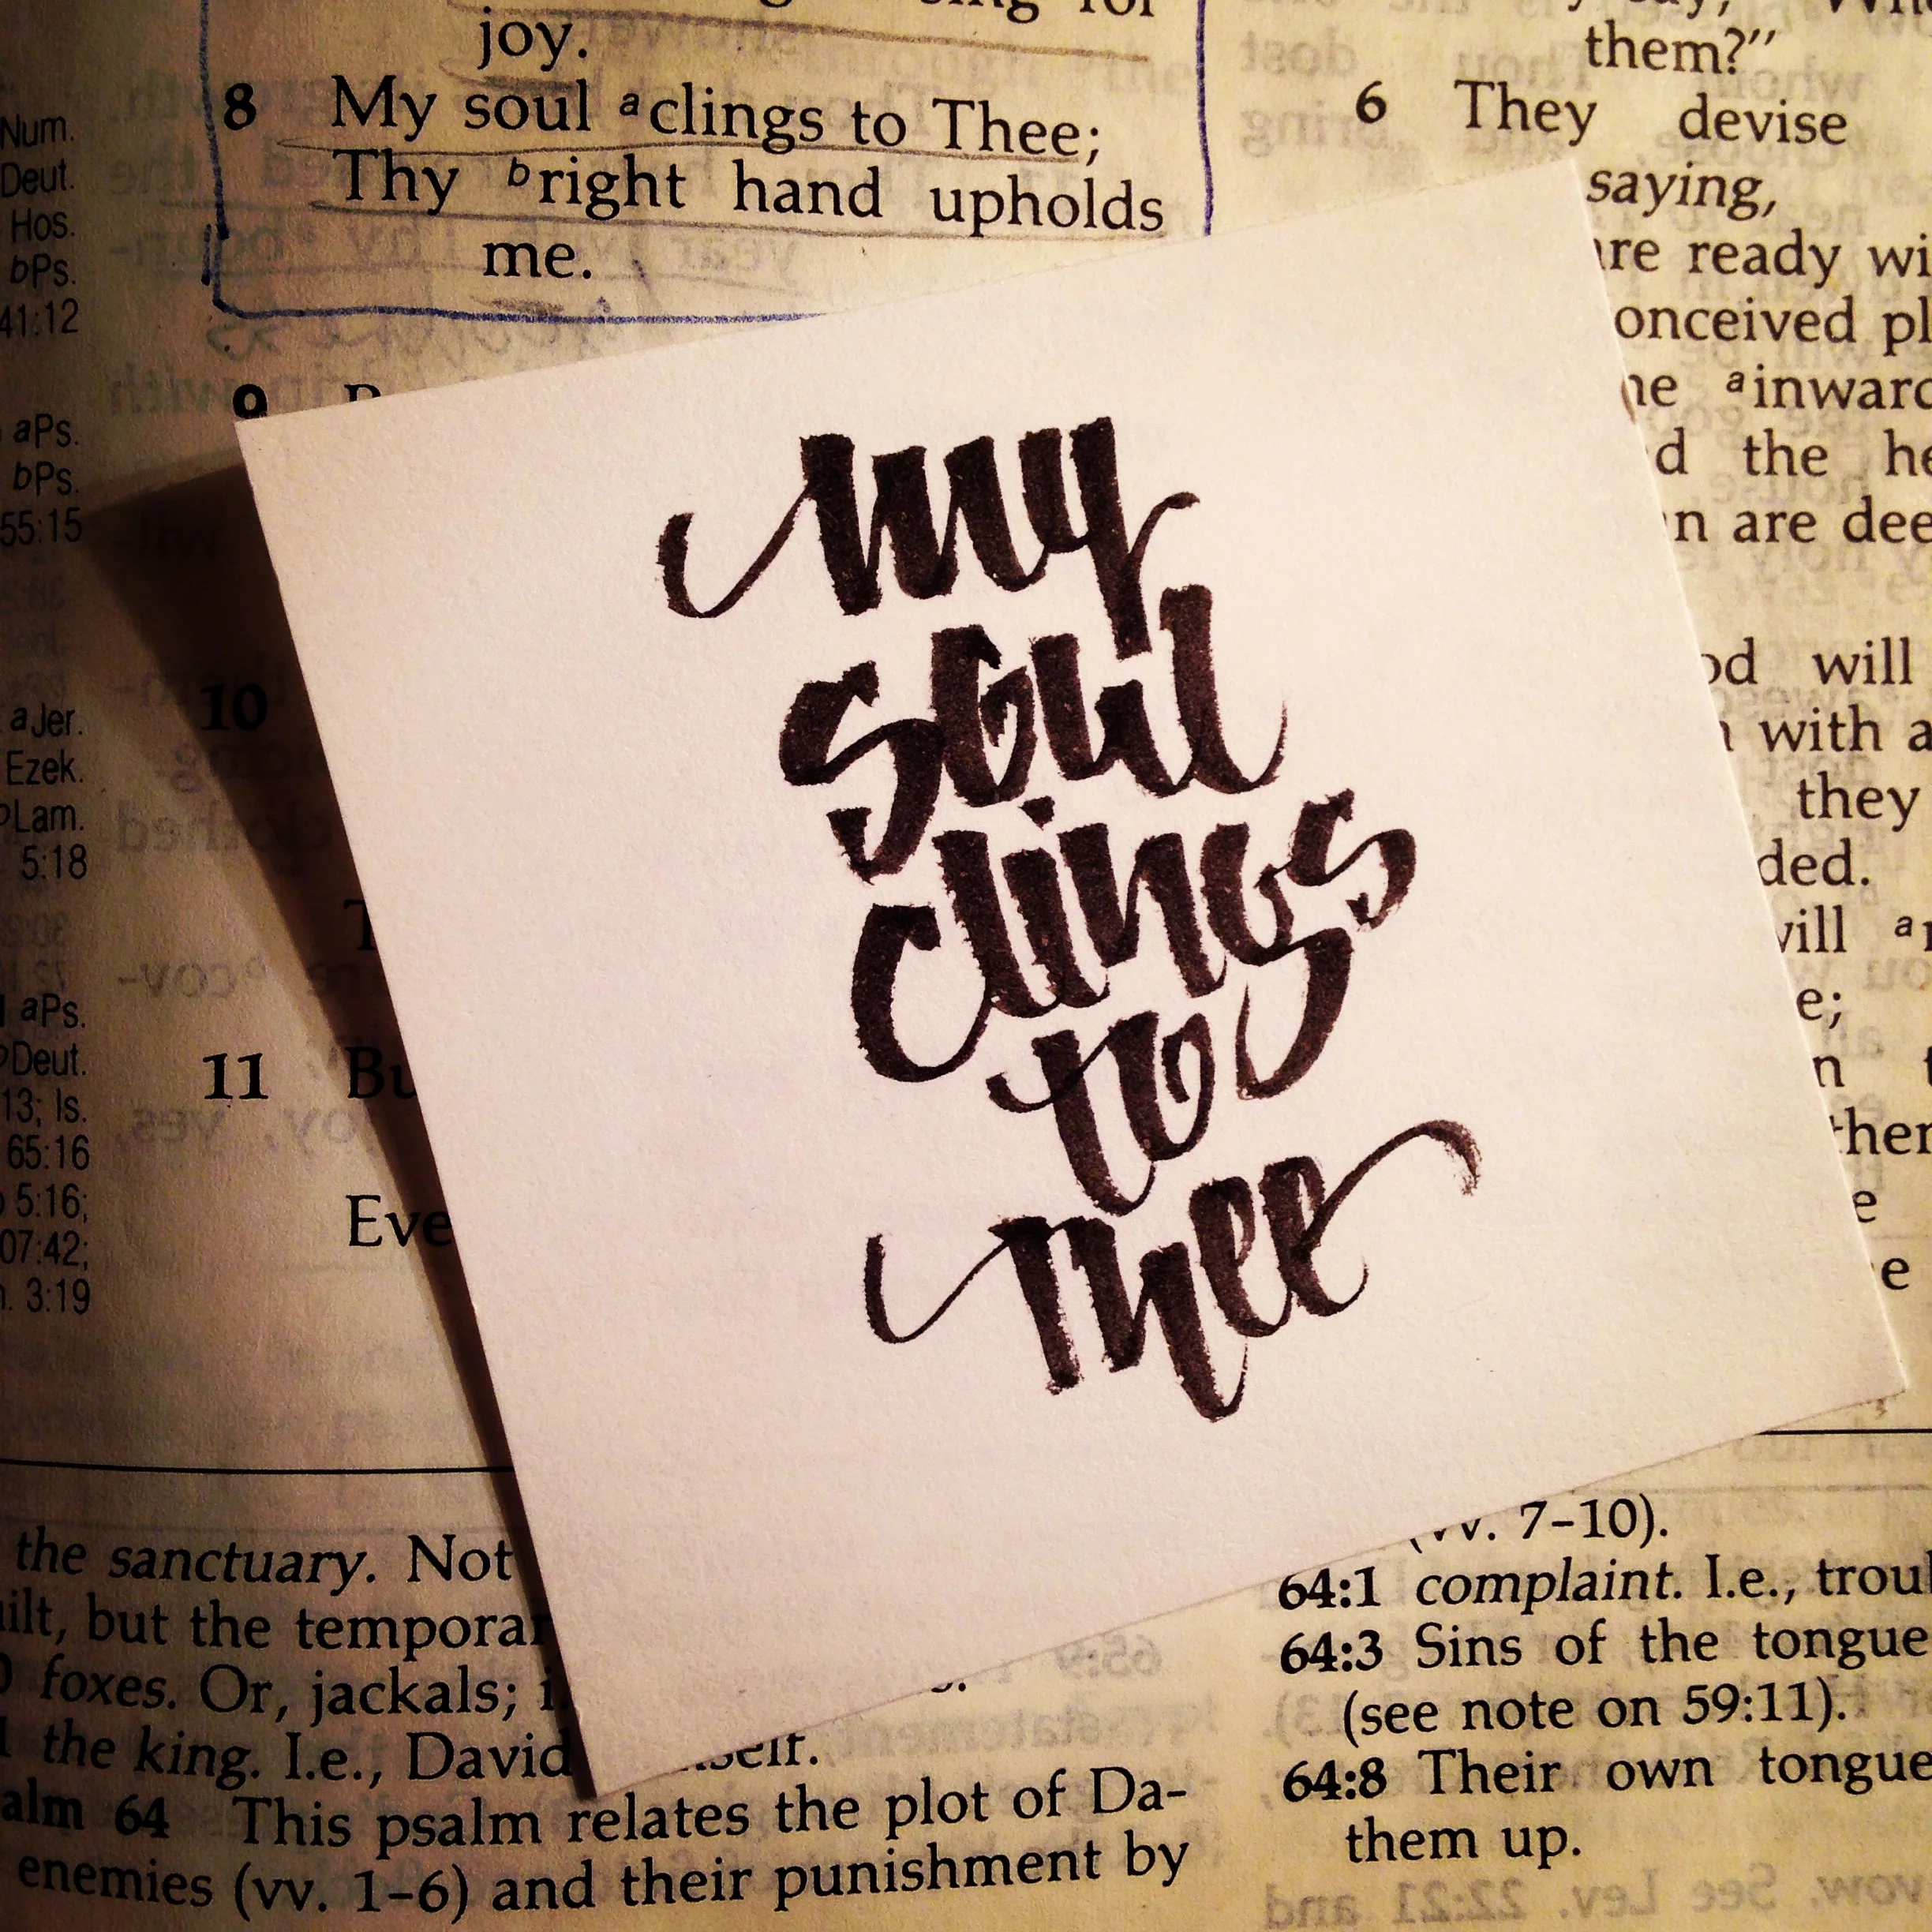 joy.
8 My soul a clings to Thee;
Thy b right hand upholds
me.
9
10
11
Eve
Num.
Deut.
Hos.
bPs.
41:12
aPs.
bPs.
55:15
aJer.
Ezek.
Lam.
5:18
aPs.
Deut.
13; Is.
65:16
5:16;
07:42;
3:19
my
soul
clings
to
Thee
them?"
6 They devise
saying,
are ready
onceived
a inward
the
are
will
with a
they
ded.
will a
the sanctuary. Not
but the temporar
foxes. Or, jackals;
the king. I.e., David
alm 64 This psalm relates the plot of Da-
enemies (vv. 1–6) and their punishment by
(vv. 7–10).
64:1 complaint. I.e., troul
64:3 Sins of the tongue
(see note on 59:11).
64:8 Their own tongue
them up.